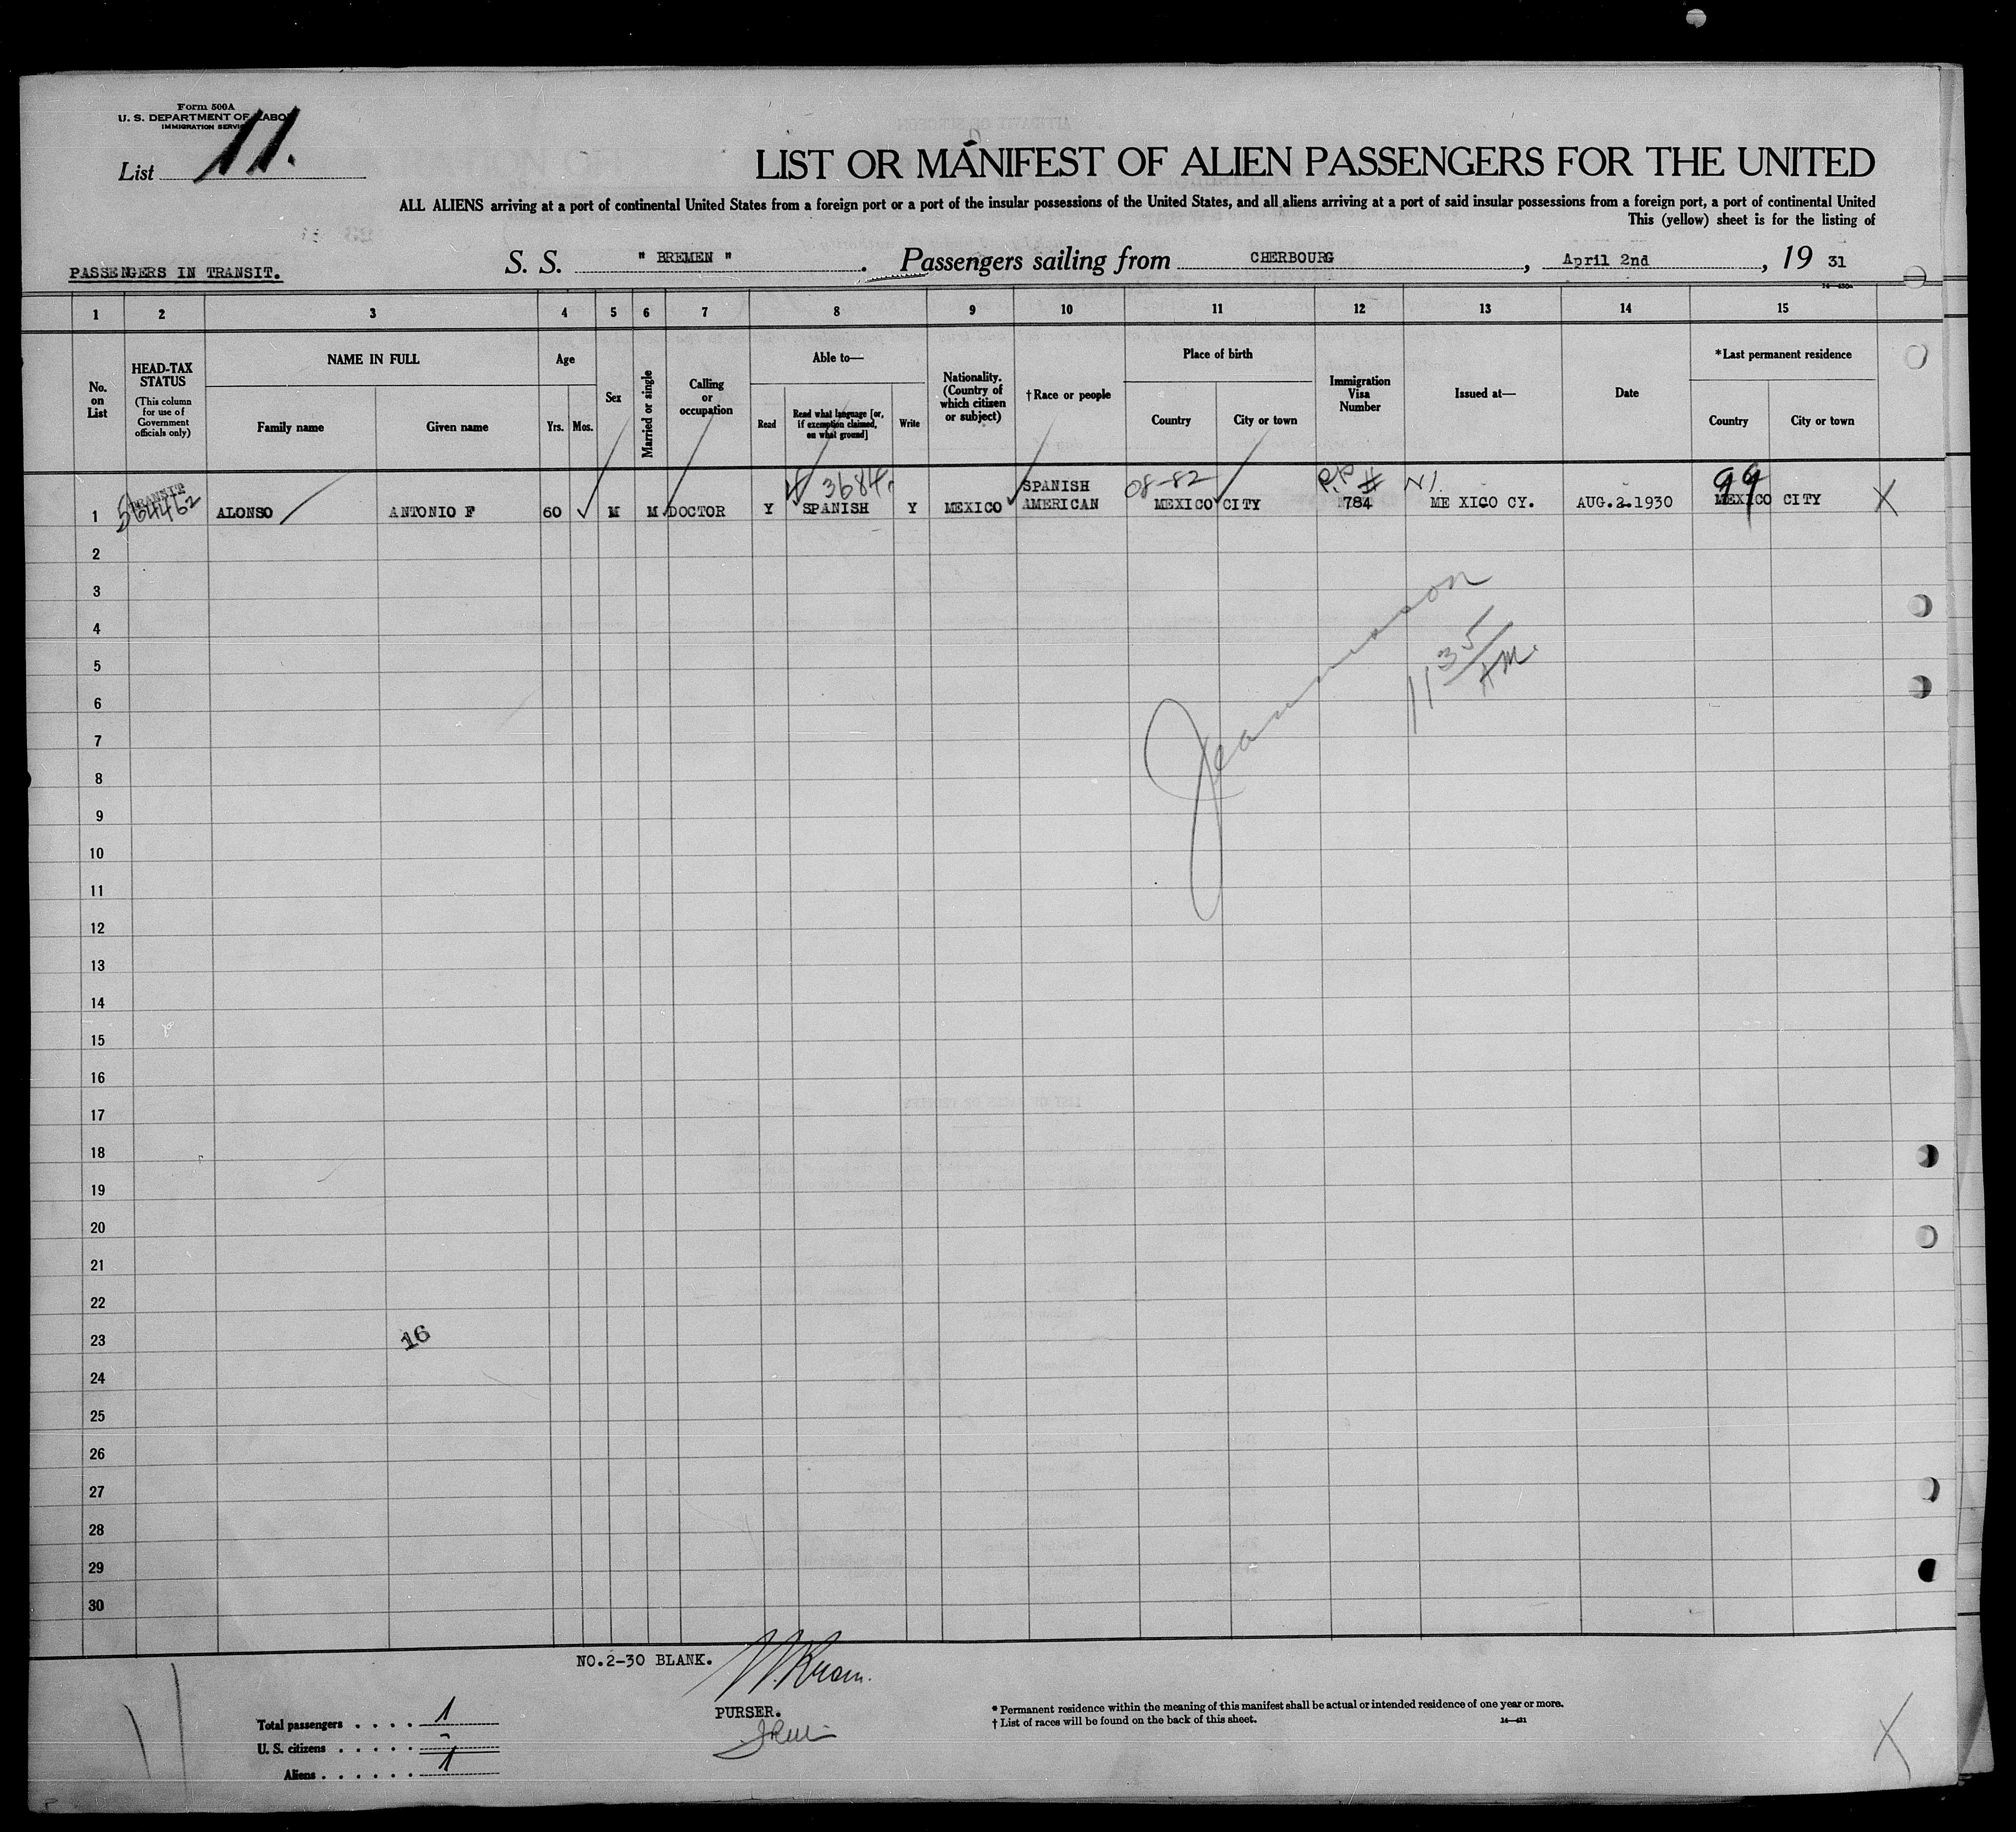 Form 500A
U. S. DEPARTMENT OF LABOR
IMMIGRATION SERVICE
List 11.
LIST OR MANIFEST OF ALIEN PASSENGERS FOR THE UNITED
ALL ALIENS arriving at a port of continental United States from a foreign port or a port of the insular possessions of the United States, and all aliens arriving at a port of said insular possessions from a foreign port, a port of continental United
This (yellow) sheet is for the listing of
PASSENGERS IN TRANSIT.
S. S. " BREMEN ". Passengers sailing from CHERBOURG, April 2nd, 19 31
1 2 3 4 5 6 7 8 9 10 11 12 13 14 15
No. on List
HEAD-TAX STATUS
(This column for use of Government officials only)
NAME IN FULL
Family name
Given name
Age
Yrs.
Mos.
Sex
Married or single
Calling or occupation
Able to—
Read
Read what language [or, if exemption claimed, on what ground]
Write
Nationality. (Country of which citizen or subject)
†Race or people
Place of birth
Country
City or town
Immigration Visa Number
Issued at—
Date
*Last permanent residence
Country
City or town
3684
08-82
P.P. #
99
TRANSIT
1 ALONSO ANTONIO F 60 M M DOCTOR Y SPANISH Y MEXICO SPANISH AMERICAN MEXICO CITY 784 ME XICO CY. AUG.2.1930 MEXICO CITY X
2
3
4
5
6
7
8
9
10
11
12
13
14
15
16
17
18
19
20
21
22
23
24
25
26
27
28
29
30
11 35/AM.
16
NO.2-30 BLANK.
PURSER.
Total passengers . . . . 1
U. S. citizens . . . . . -
Aliens . . . . . . 1
* Permanent residence within the meaning of this manifest shall be actual or intended residence of one year or more.
† List of races will be found on the back of this sheet.
14—431
X